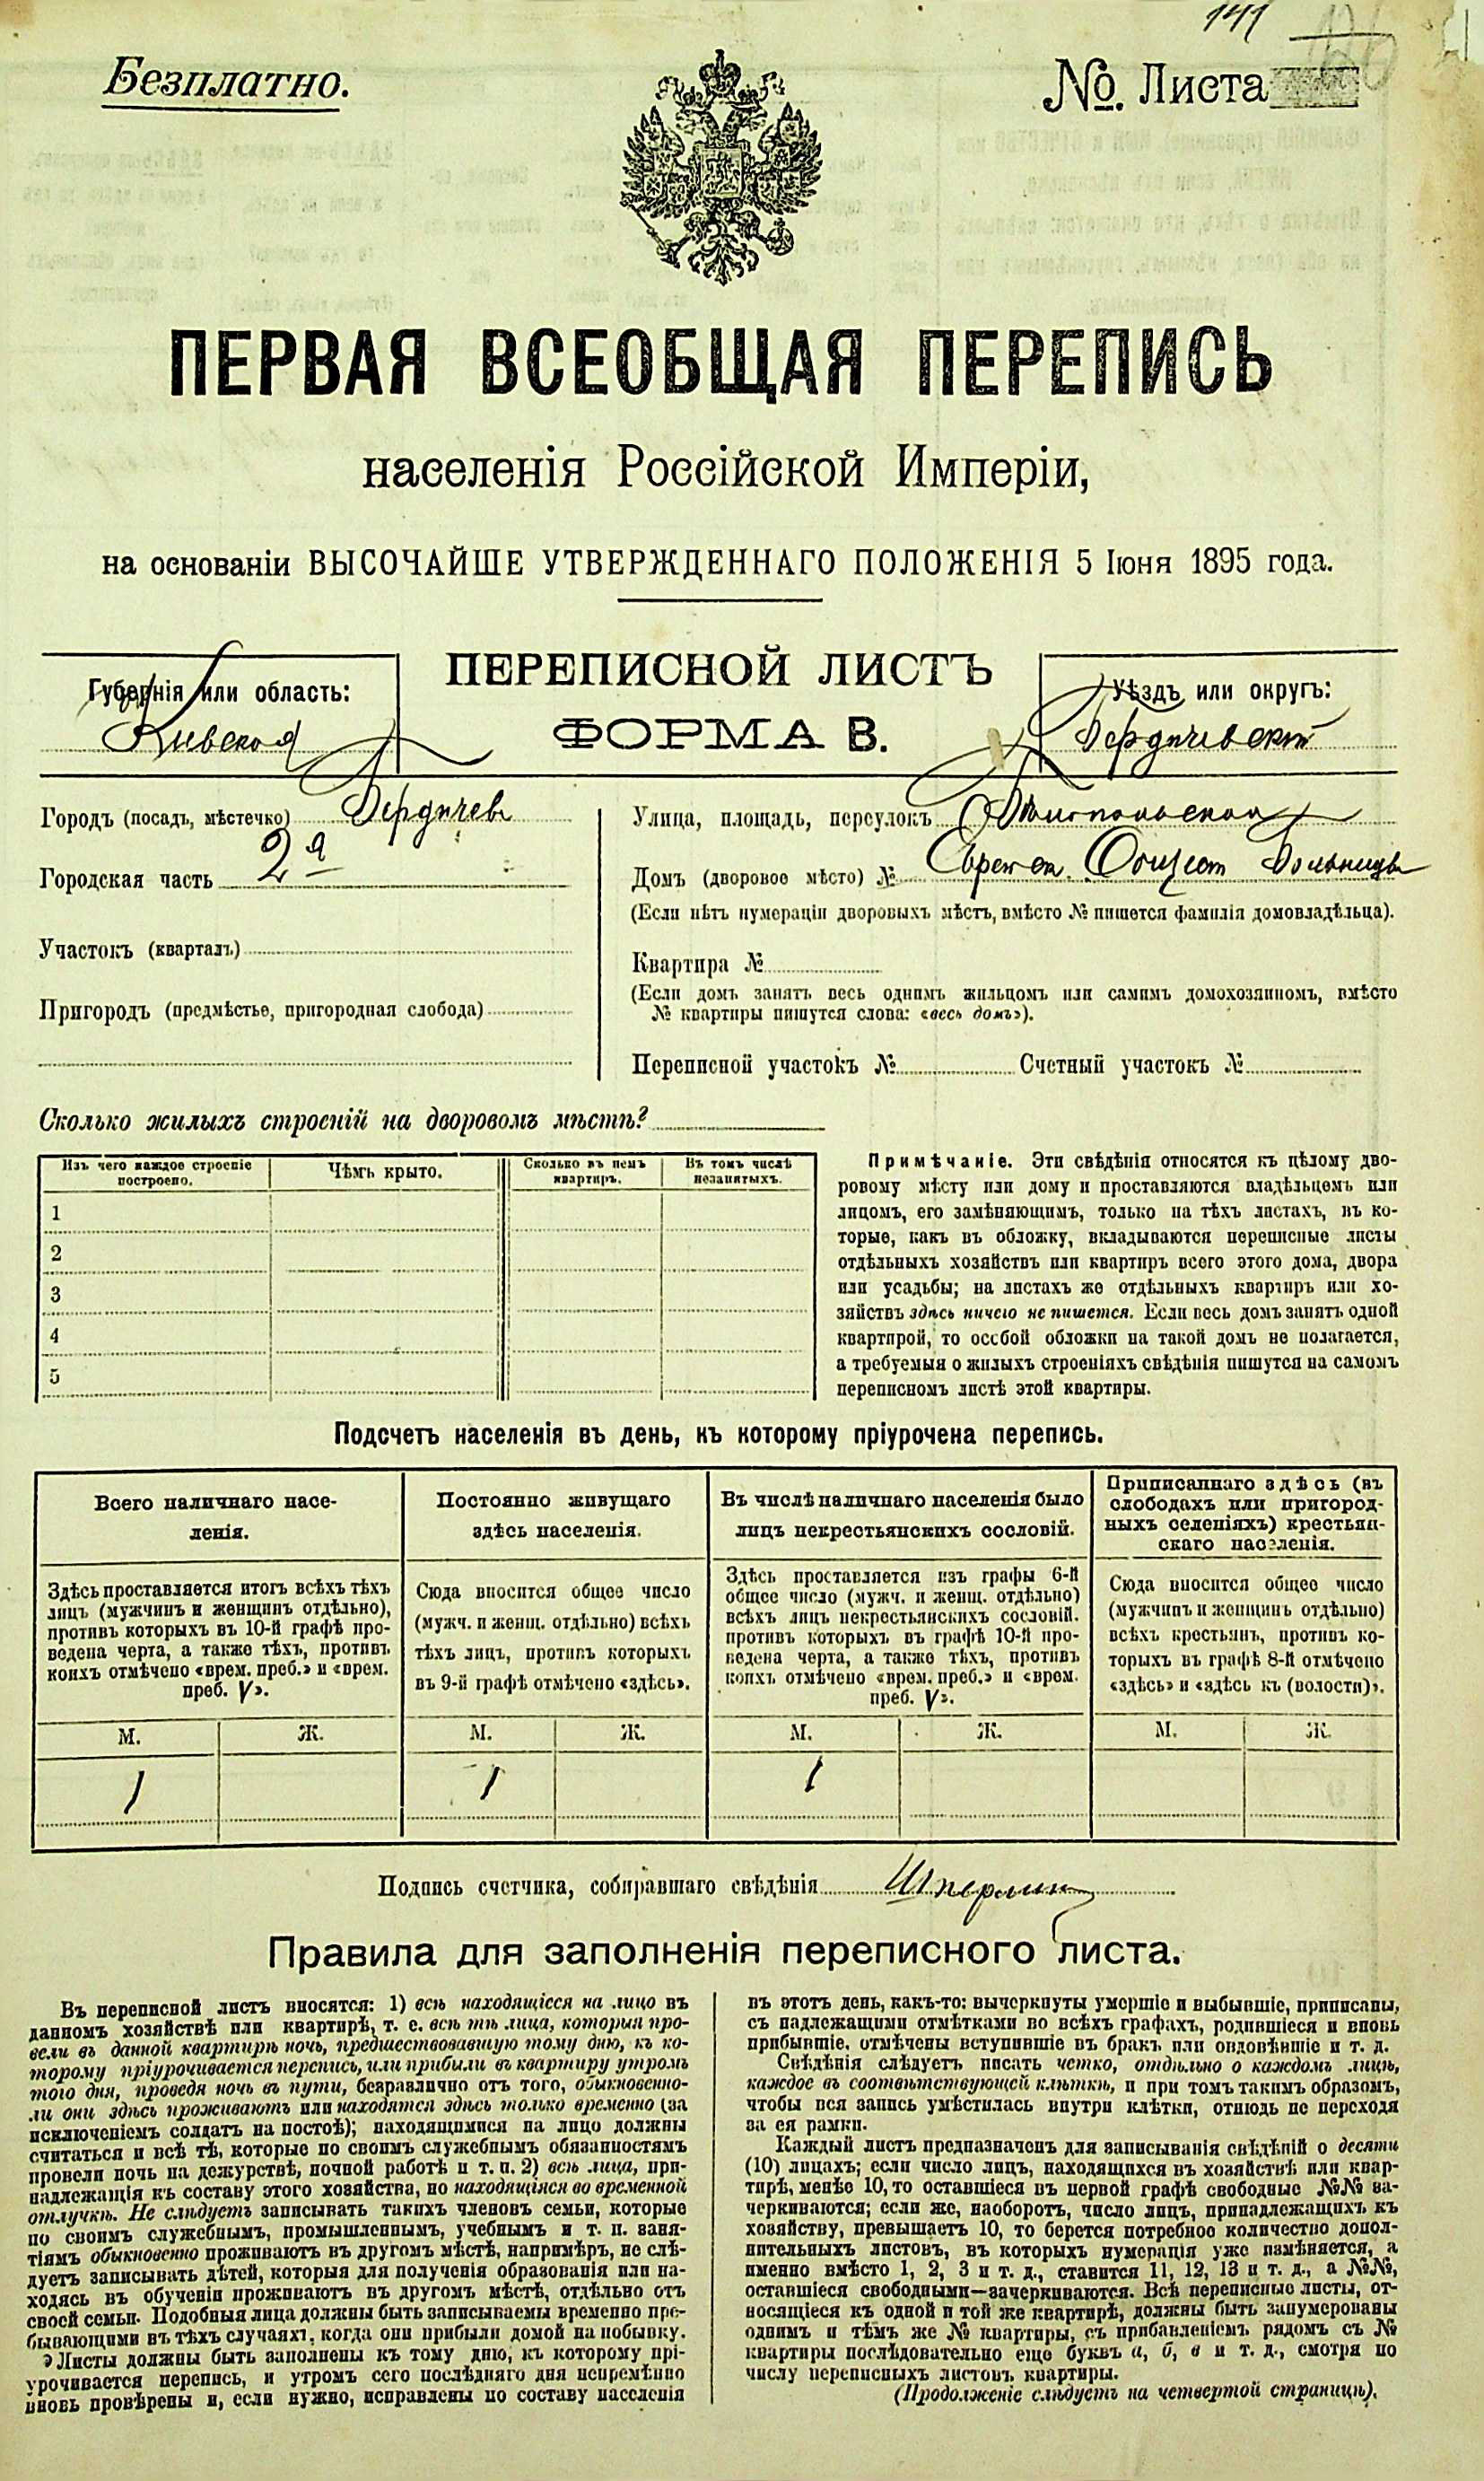 141
Безплатно.
№. Листа
ПЕРВАЯ ВСЕОБЩАЯ ПЕРЕПИСЬ
населенія Россійской Имперіи,
на основаніи ВЫСОЧАЙШЕ УТВЕРЖДЕННАГО ПОЛОЖЕНІЯ 5 Іюня 1895 года.
Губернія или область:
Кивская
ПЕРЕПИСНОЙ ЛИСТЪ
ФОРМА В.
Уѣздъ или округъ:
Бердичевскій
Городъ (посадъ, мѣстечко) Бердичев
Городская часть 2я
Участокъ (кварталъ)
Пригородъ (предмѣстье, пригородная слобода)
Улица, площадь, переулокъ Бѣлопольская
Домъ (дворовое мѣсто) № Еврейск. Общест Больница
(Если нѣтъ нумераціи дворовыхъ мѣстъ, вмѣсто № пишется фамилія домовладѣльца).
Квартира №
(Если домъ занятъ весь однимъ жильцомъ или самимъ домохозяиномъ, вмѣсто
№ квартиры пишутся слова: «весь домъ»).
Переписной участокъ № Счетный участокъ №
Сколько жилыхъ строеній на дворовомъ мѣстѣ?
Изъ чего каждое строеніе
построено.
Чѣмъ крыто.
Сколько въ немъ
квартиръ.
Въ томъ числѣ
незанятыхъ.
1
2
3
4
5
Примѣчаніе. Эти свѣдѣнія относятся къ цѣлому дво-
ровому мѣсту или дому и проставляются владѣльцемъ или
лицомъ, его замѣняющимъ, только на тѣхъ листахъ, въ ко-
торые, какъ въ обложку, вкладываются переписные листы
отдѣльныхъ хозяйствъ или квартиръ всего этого дома, двора
или усадьбы; на листахъ же отдѣльныхъ квартиръ или хо-
зяйствъ здѣсь ничего не пишется. Если весь домъ занятъ одной
квартирой, то особой обложки на такой домъ не полагается,
а требуемыя о жилыхъ строеніяхъ свѣдѣнія пишутся на самомъ
переписномъ листѣ этой квартиры.
Подсчетъ населенія въ день, къ которому пріурочена перепись.
Всего наличнаго насе-
ленія.
Здѣсь проставляется итогъ всѣхъ тѣхъ
лицъ (мужчинъ и женщинъ отдѣльно),
противъ которыхъ въ 10-й графѣ про-
ведена черта, а также тѣхъ, противъ
коихъ отмѣчено «врем. преб.» и «врем.
преб. V».
Постоянно живущаго
здѣсь населенія.
Сюда вносится общее число
(мужч. и женщ. отдѣльно) всѣхъ
тѣхъ лицъ, противъ которыхъ
въ 9-й графѣ отмѣчено «здѣсь».
Въ числѣ наличнаго населенія было
лицъ некрестьянскихъ сословій.
Здѣсь проставляется изъ графы 6-й
общее число (мужч. и женщ. отдѣльно)
всѣхъ лицъ некрестьянскихъ сословій.
противъ которыхъ въ графѣ 10-й про-
ведена черта, а также тѣхъ, противъ
коихъ отмѣчено «врем. преб.» и «врем.
преб. V».
Приписаннаго здѣсь (въ
слободахъ или пригород-
ныхъ селеніяхъ) крестьян-
скаго населенія.
Сюда вносится общее число
(мужчинъ и женщинъ отдѣльно)
всѣхъ крестьянъ, противъ ко-
торыхъ въ графѣ 8-й отмѣчено
«здѣсь» и «здѣсь къ (волости)».
М. Ж. М. Ж. М. Ж. М. Ж.
1 1 1
Подпись счетчика, собиравшаго свѣдѣнія Шперлинг
Правила для заполненія переписного листа.
Въ переписной листъ вносятся: 1) всѣ находящіеся на лицо въ
данномъ хозяйствѣ или квартирѣ, т. е. всѣ тѣ лица, которыя про-
вели въ данной квартирѣ ночь, предшествовавшую тому дню, къ ко-
торому пріурочивается перепись, или прибыли въ квартиру утромъ
того дня, проведя ночь въ пути, безразлично отъ того, обыкновенно-
ли они здѣсь проживаютъ или находятся здѣсь только временно (за
исключеніемъ солдатъ на постоѣ); находящимися на лицо должны
считаться и всѣ тѣ, которые по своимъ служебнымъ обязанностямъ
провели ночь на дежурствѣ, ночной работѣ и т. п. 2) всѣ лица, при-
надлежащія къ составу этого хозяйства, но находящіяся во временной
отлучкѣ. Не слѣдуетъ записывать такихъ членовъ семьи, которые
по своимъ служебнымъ, промышленнымъ, учебнымъ и т. п. заня-
тіямъ обыкновенно проживаютъ въ другомъ мѣстѣ, напримѣръ, не слѣ-
дуетъ записывать дѣтей, которыя для полученія образованія или на-
ходясь въ обученіи проживаютъ въ другомъ мѣстѣ, отдѣльно отъ
своей семьи. Подобныя лица должны быть записываемы временно пре-
бывающими въ тѣхъ случаяхъ, когда они прибыли домой на побывку.
Листы должны быть заполнены къ тому дню, къ которому прі-
урочивается перепись, и утромъ сего послѣдняго дня непремѣнно
вновь провѣрены и, если нужно, исправлены по составу населенія
въ этотъ день, какъ-то: вычеркнуты умершіе и выбывшіе, приписаны,
съ надлежащими отмѣтками во всѣхъ графахъ, родившіеся и вновь
прибывшіе, отмѣчены вступившіе въ бракъ или овдовѣвшіе и т. д.
Свѣдѣнія слѣдуетъ писать четко, отдѣльно о каждомъ лицѣ,
каждое въ соотвѣтствующей клѣткѣ, и при томъ такимъ образомъ,
чтобы вся запись умѣстилась внутри клѣтки, отнюдь не переходя
за ея рамки.
Каждый листъ предназначенъ для записыванія свѣдѣній о десяти
(10) лицахъ; если число лицъ, находящихся въ хозяйствѣ или квар-
тирѣ, менѣе 10, то оставшіеся въ первой графѣ свободные №№ за-
черкиваются; если же, наоборотъ, число лицъ, принадлежащихъ къ
хозяйству, превышаетъ 10, то берется потребное количество допол-
нительныхъ листовъ, въ которыхъ нумерація уже измѣняется, а
именно вмѣсто 1, 2, 3 и т. д., ставится 11, 12, 13 и т. д., а №№,
оставшіеся свободными—зачеркиваются. Всѣ переписные листы, от-
носящіеся къ одной и той же квартирѣ, должны быть занумерованы
однимъ и тѣмъ же № квартиры, съ прибавленіемъ рядомъ съ №
квартиры послѣдовательно еще буквъ а, б, в и т. д., смотря по
числу переписныхъ листовъ квартиры.
(Продолженіе слѣдуетъ на четвертой страницѣ).